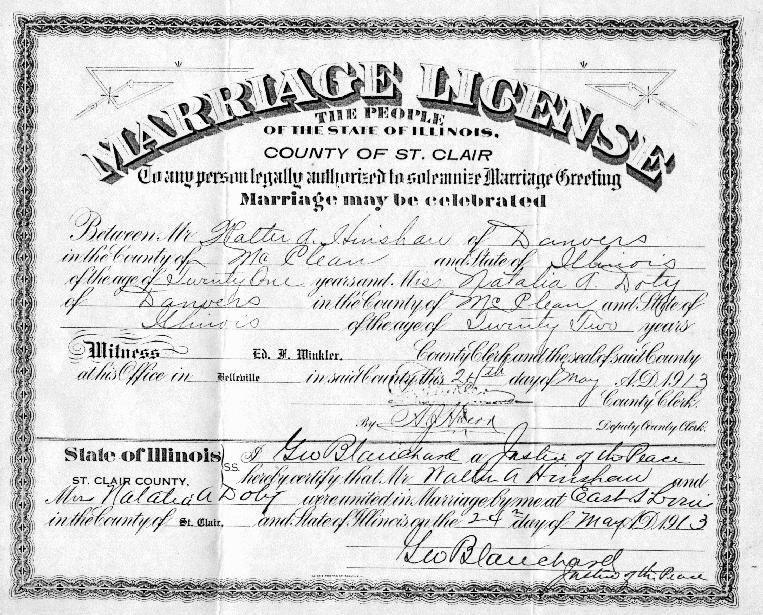 MARRIAGE LICENSE
THE PEOPLE
OF THE STATE OF ILLINOIS,
COUNTY OF ST. CLAIR
To any person legally authorized to solemnize Marriage Greeting
Marriage may be celebrated
Between Mr Walter A. Hinshaw of Danvers
in the County of McClean and State of Illinois
of the age of Twenty One years and Miss Natalia A. Doty
of Danvers in the County of McClean and State of
Illinois of the age of Twenty Two years
Witness Ed. F. Winkler. County Clerk and the seal of said County
at his Office in Belleville in said County this 24th day of May A.D. 1913
County Clerk.
By Deputy County Clerk.
State of Illinois } S.S. I Geo Blanchard a Justice of the Peace
ST. CLAIR COUNTY. hereby certify that Mr Walter A Hinshaw and
Miss Natalia A Doty were united in Marriage by me at East St Louis
in the County of St. Clair, and State of Illinois on the 24th day of May A.D. 1913
Geo Blanchard
Justice of the Peace